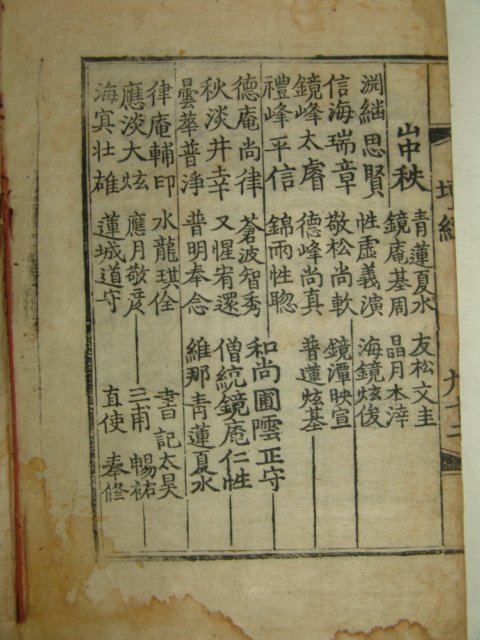 山中秩
青蓮夏水 友松文圭
鏡庵基周 晶月本淬
思賢 性虛義演 海鏡炫俊
信海瑞章 敬松尚軟 鏡潭映宣
鏡峰太睿 德峰尚真 普蓮炫基
禮峰平信 錦雨性聦 和尚圃雲正守
德庵尚律 蒼波智秀 僧統鏡庵仁性
秋淡井幸 又惺宥還 維那青蓮夏水
曇華普淨 普明奉念
律庵輔印 水龍琪佺 書記太昊
應淡大炫 應月敬彦 三甫暢祐
海㝠壯雄 蓮城道守 直使奉修